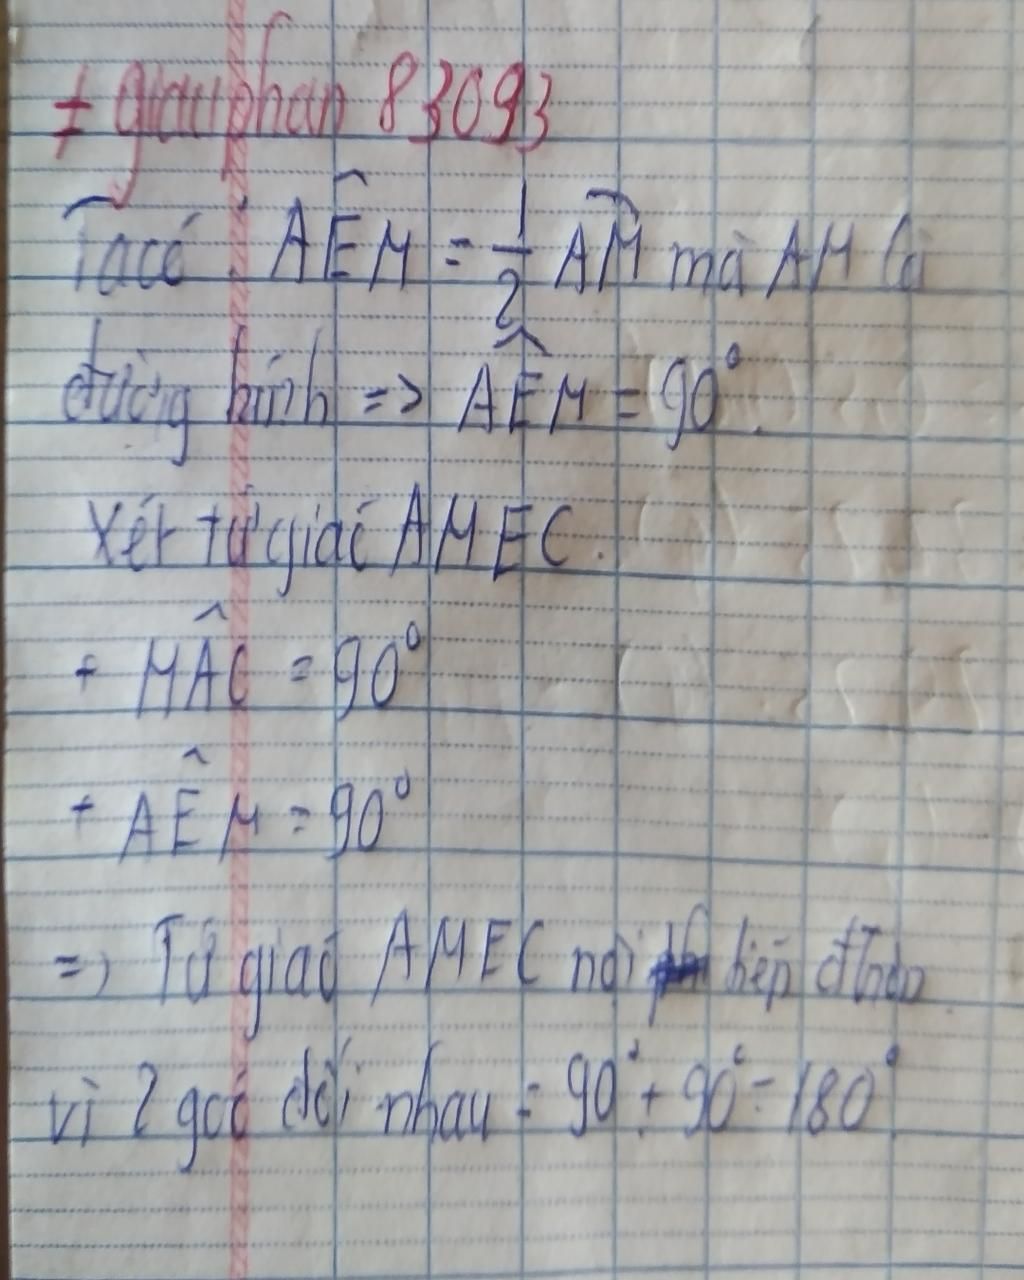 + giauphan 83093
Ta có: AÊM = 1/2 AM mà AM là
đường kính => AÊM = 90°.
Xét tứ giác AMEC.
+ MÂC = 90°
+ AÊM = 90°
=> Tứ giác AMEC nội tiếp đtròn
vì 2 góc đối nhau = 90° + 90° = 180°.